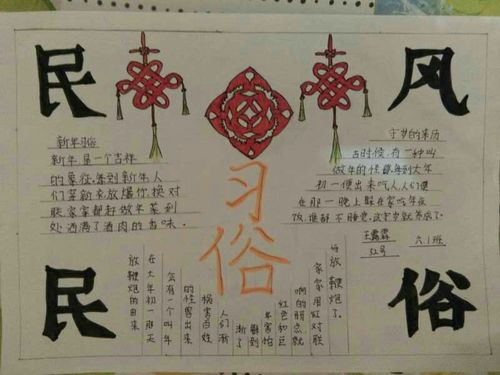 民
风
新年习俗
新年是一个吉祥
的象征,每到新年人
们等新衣放爆竹,换对
联,家家都赶做年菜,到
处洒满了酒肉的香味。
守岁的来历
古时候,有一种叫
做年的怪兽,每到大年
初一便出来吃人,人们便
在那一晚上躲在家吃年夜
饭,
王露霖
六.1班
习
俗
放鞭炮的由来
在大年初一那天
会有一个叫年
的怪兽出来
祸害百姓
人们渐
渐了
年害怕
红色和巨
响的弱点就
家家用红对联
放鞭炮了。
民
俗